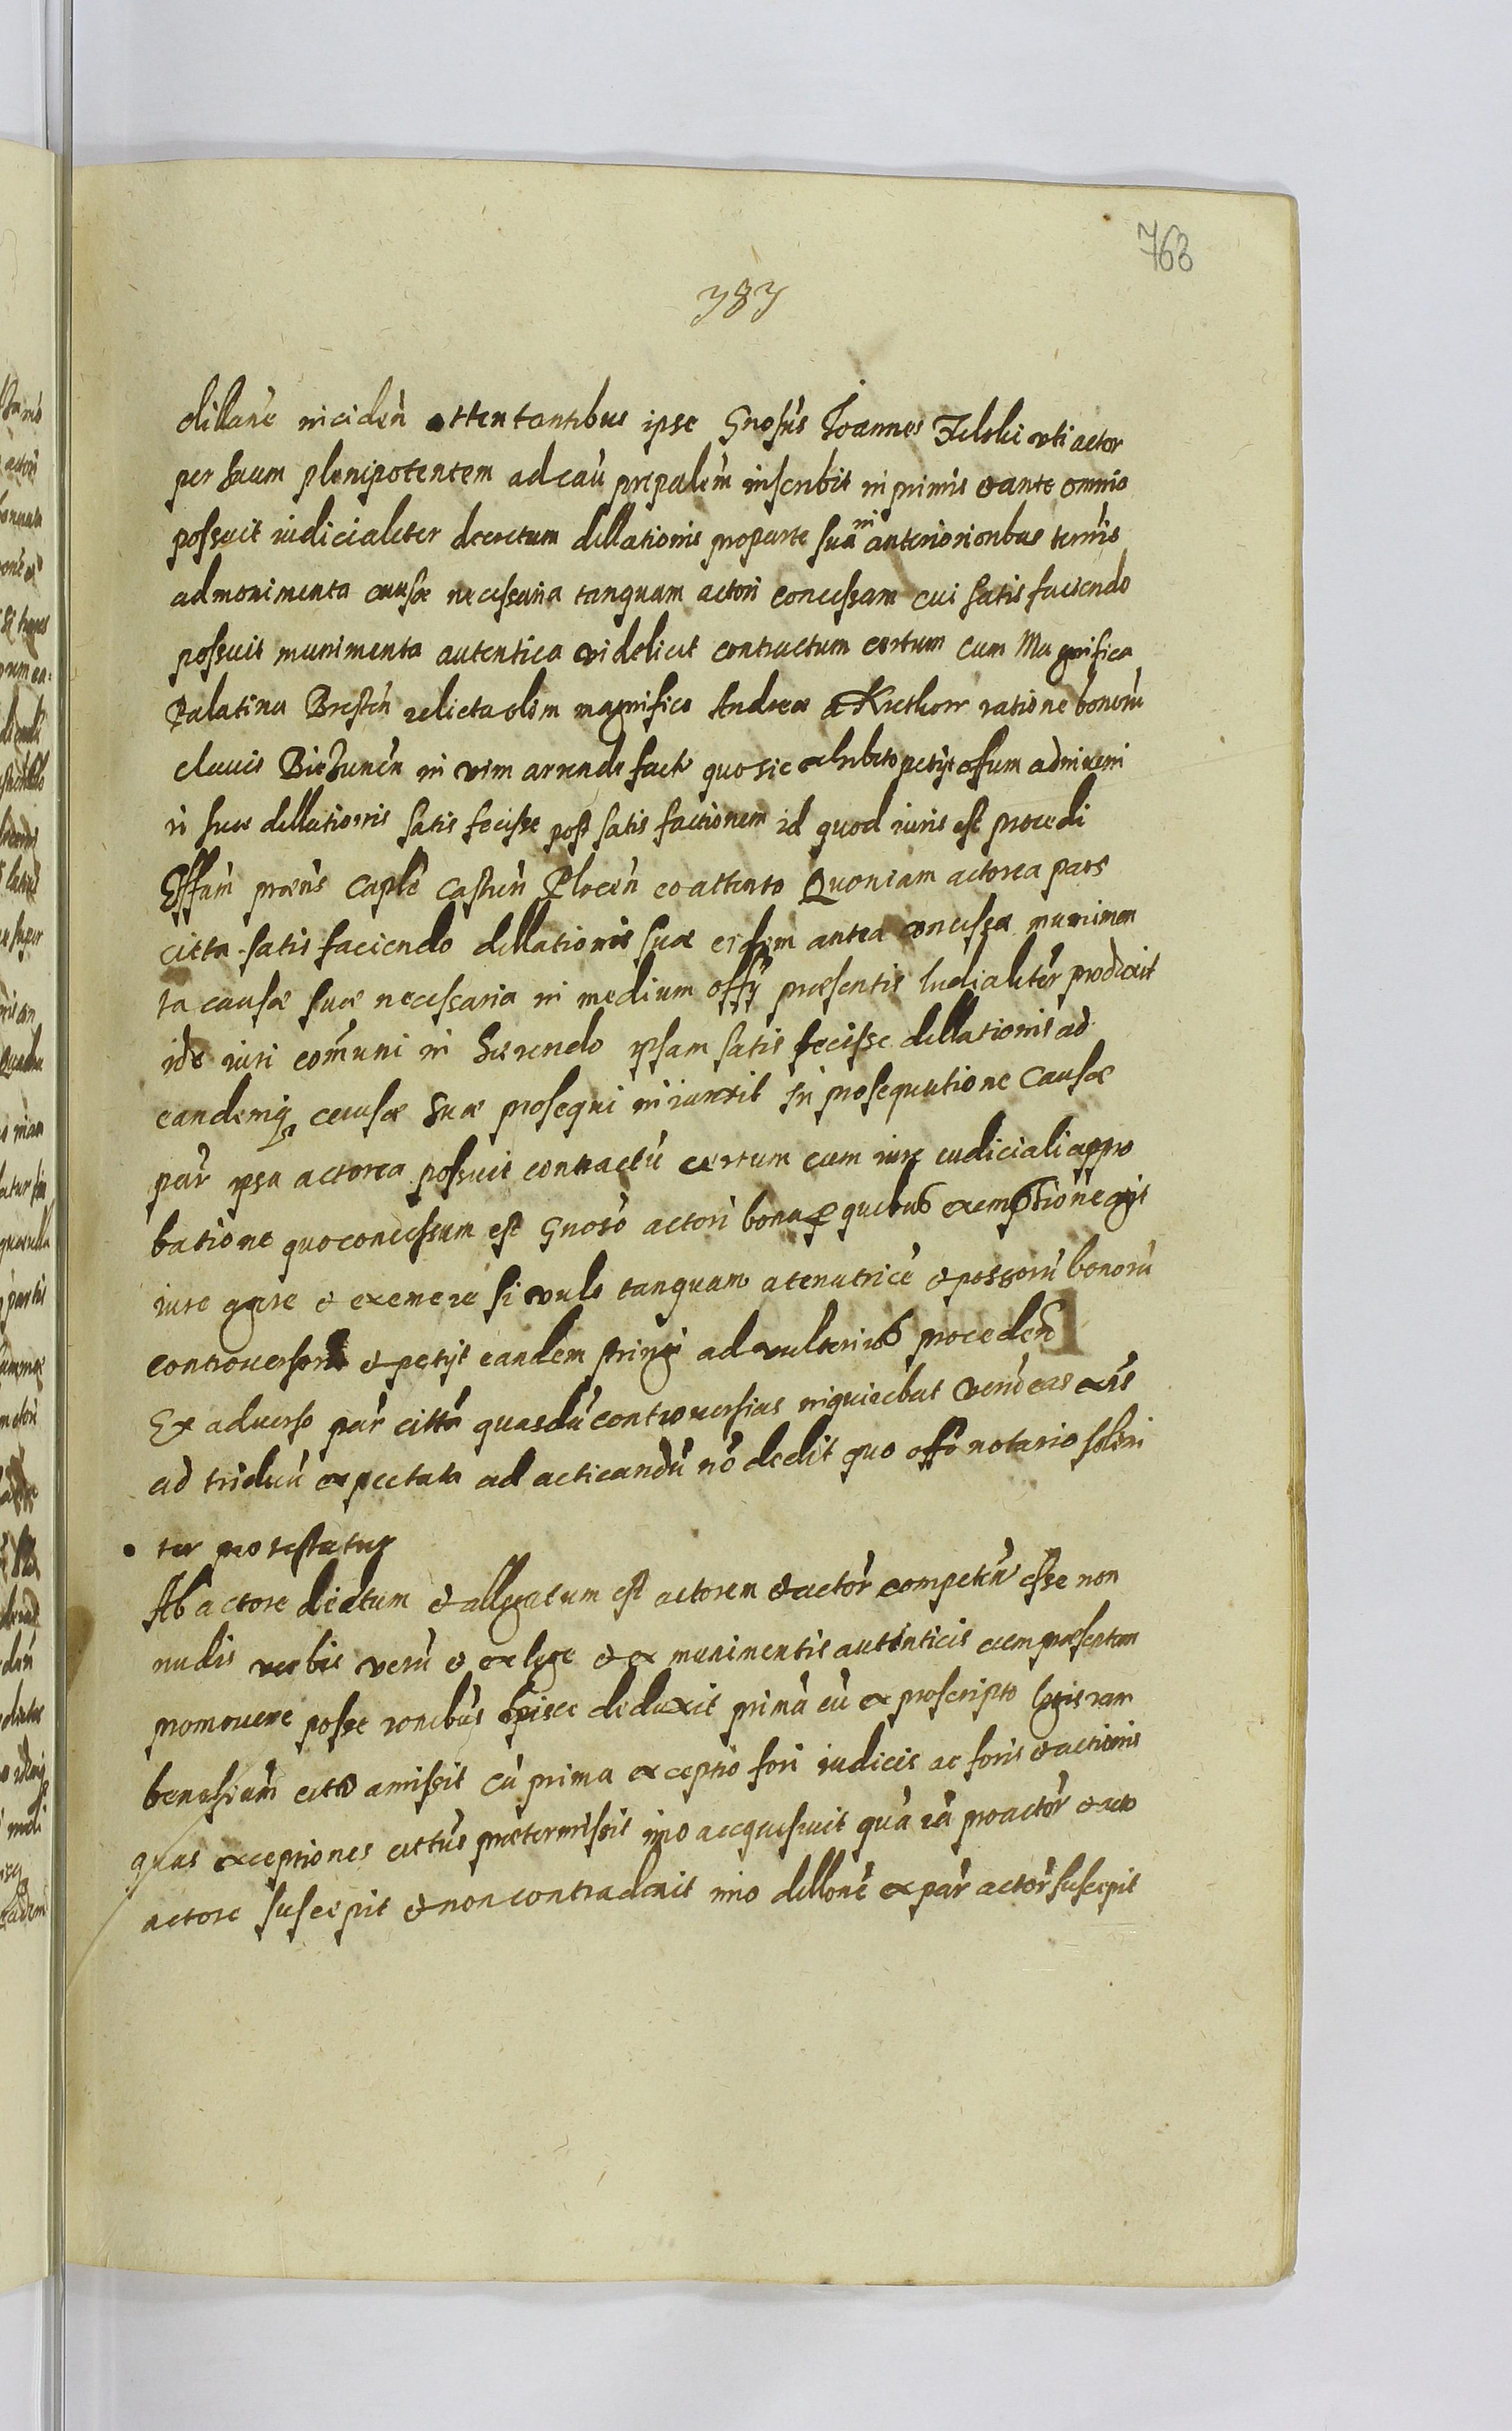 763
383
dillane inciden attentantibus ipse Gnosus Joannes Filski uti actor
per suum plenipotentem ad cau prepalem inscribit in primis et ante omnia
possuit iudicialiter decretum dillationis pro parte sua in anteriorionbus termis
ad monimenta causæ necessaria tanquam actori concessam cui satis faciendo
possuit munimenta autentica videlicet contractum certum cum Magnifica
Palatina Bresten relicta olim magnifico Andreæ a Krethow ratione bonoru
clavis Biezunen in vim arrende facti quo sic exhibito petijt offum adinveni
ri suæ dillationis satis fecisse post satis factionem id quod iuris est procedi
Offum præns Caple Castren Plocen eo attento Quoniam actorea pars
citta satis faciendo dillationis suæ eidem antea concessæ munimen
ta causæ suæ necessaria in medium offy præsentis Iudicialiter produxit
ido iuri comuni in hærendo ipsam satis fecisse dillationis ad
eandemq causæ suæ prosequi iniunxit In prosequutione causæ
par ipsa actorea possuit contractu certum cum iure iudiciali appro
batione quo concessum est Gnoso actori bona quibus exemptione agit
iure agere et exemere si vult tanquam a tenutrice et possoru bonoru
controversoru et petijt eandem stringi ad vulterius proceden
Ex adverso par citta quasdu controversias inquirebat veru eas exis
ad triduu expectata ad acticandu no dedit quo offo notario solen
ter protestatur
Ab actore dictum et allegatum est actorem et actor competen esse non
nudis verbis veru et ex lege et ex munimentis autenticis eum præsentem
promovere posse ronibus deduxit prima cu ex proscripto legis
citto amissit cu prima exceptio fori iudicis ac foris et actionis
quas exceptiones cittus prætermissit imo acquevit qua ra pro actor et acto
actore suscepit et non contradixit imo dillone ex par actor suscepit